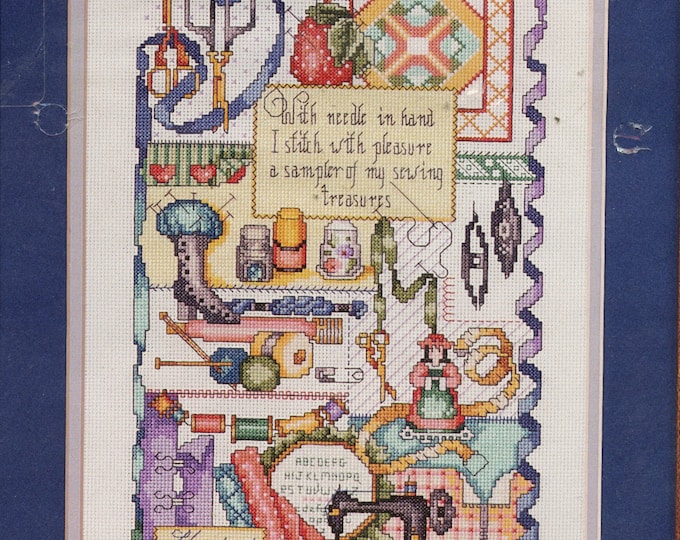 With needle in hand
I stitch with pleasure
a sampler of my sewing
treasures
ABCDEFG
HIJKLMNOPQ